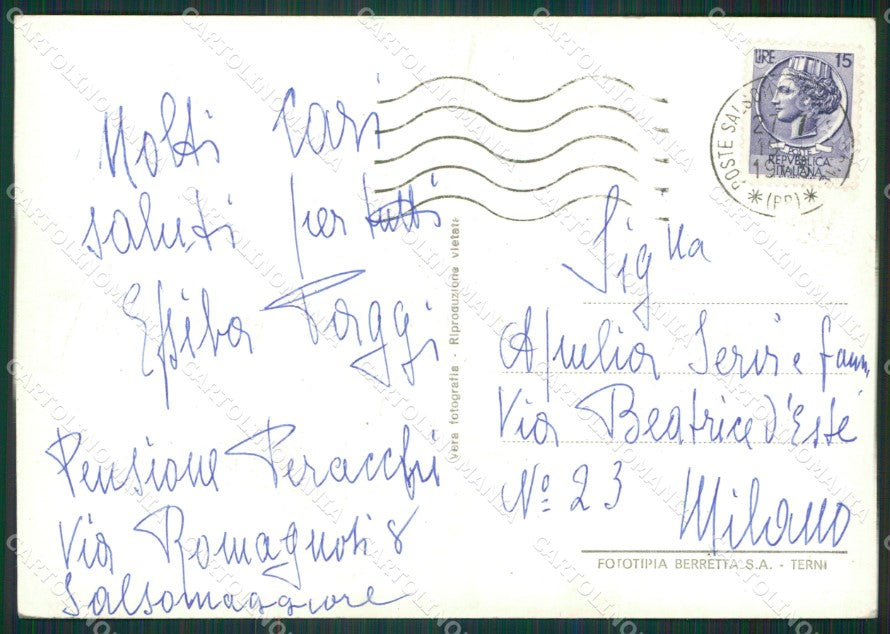 Molti Cari
saluti per tutti
Poggi
Pensione Peracchi
Via Romagnosi 8
Salsomaggiore
vera fotografia - Riproduzione vietata
LIRE 15
POSTE
REPVBBLICA
ITALIANA
POSTE SALSOM
(PR)
Sig.na
Servi e fam.
Via Beatrice d'Este
No 23
Milano
FOTOTIPIA BERRETTA S.A. - TERNI
CARTOLINOMANIA